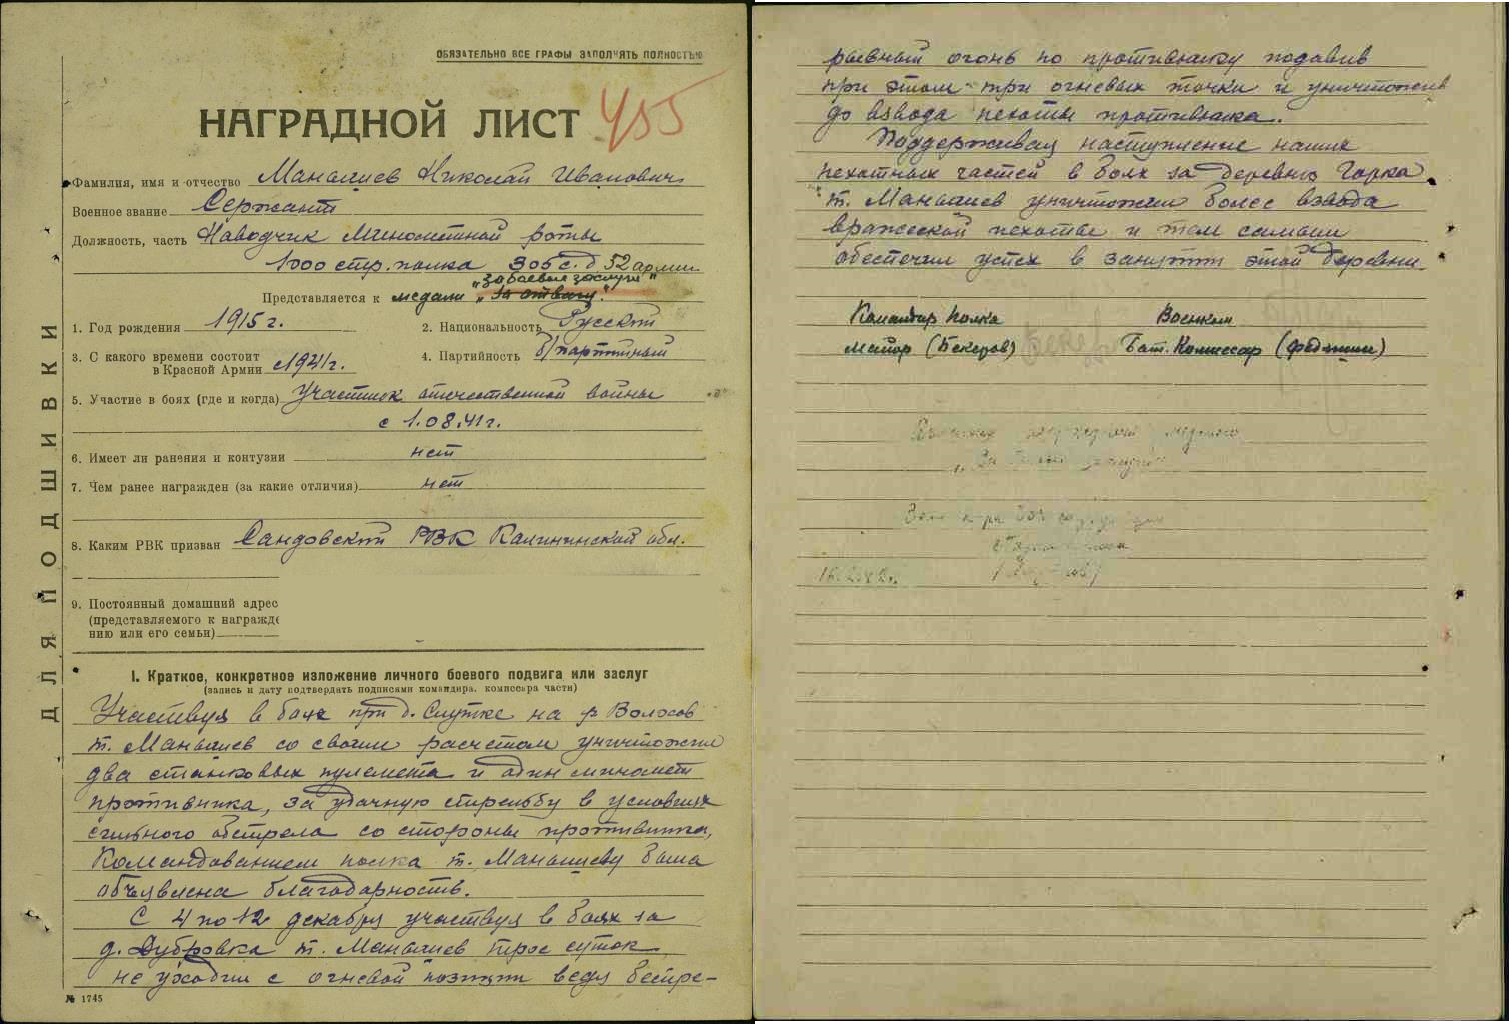 ОБЯЗАТЕЛЬНО ВСЕ ГРАФЫ ЗАПОЛНЯТЬ ПОЛНОСТЬЮ
НАГРАДНОЙ ЛИСТ 455
Фамилия, имя и отчество Маньшиев Николай Иванович
Военное звание Сержант
Должность, часть Наводчик Минометной роты
1000 стр. полка 305 с. д 52 армии
"За боевые заслуги"
Представляется к медали "За отвагу".
1. Год рождения 1915 г. 2. Национальность Русский
3. С какого времени состоит в Красной Армии с 1941 г. 4. Партийность б/партийный
5. Участие в боях (где и когда) Участник отечественной войны
с 1.08.41 г.
6. Имеет ли ранения и контузии нет
7. Чем ранее награжден (за какие отличия) нет
8. Каким РВК призван Сандовский РВК Калининской обл.
9. Постоянный домашний адрес
(представляемого к награжде
нию или его семьи)
ДЛЯ ПОДШИВКИ
I. Краткое, конкретное изложение личного боевого подвига или заслуг
(запись и дату подтвердать подписями командира, комиссара части)
Участвуя в боях при д. Слутке на р Волохов
т. Маньшиев со своим расчетом уничтожил
два станковых пулемета и один миномет
противника, за удачную стрельбу в условиях
сильного обстрела со стороны противника,
Командованием полка т. Маньшиеву была
объявлена благодарность.
С 4 по 12 декабря участвуя в боях за
д. Дубровка т. Маньшиев трое суток
не уходил с огневой позиции ведя беспре-
№ 1745
рывный огонь по противнику подавив
при этом три огневых точки и уничтожив
до взвода пехоты противника.
Поддерживая наступление наших
пехотных частей в боях за деревню Горка
т. Маньшиев уничтожил более взвода
вражеской пехоты и тем самым
обеспечил успех в занятии этой деревни.
Командир полка Военком
Майор (Бекетов) Бат. Комиссар